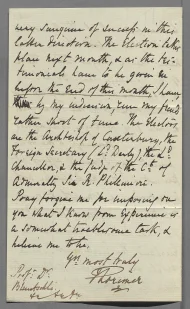 very sanguine of success in this
latter direction. The Election takes
place next month, & as the Tes-
timonials have to be given in
before the End of this month, I have
by my indecision, run my friends
rather short of time. The Electors
are the Archbishop of Canterbury, the
Foreign Secretary (Ld Derby), the Ld
Chancellor, & the Judge of the Ct of
Admiralty Sir R. Phillimore.
Pray forgive me for imposing on
you what I know from Experience is
a somewhat troublesome task, &
believe me to be,
Yrs most truly
Profr Dr
Bluntschli
&c &c &c